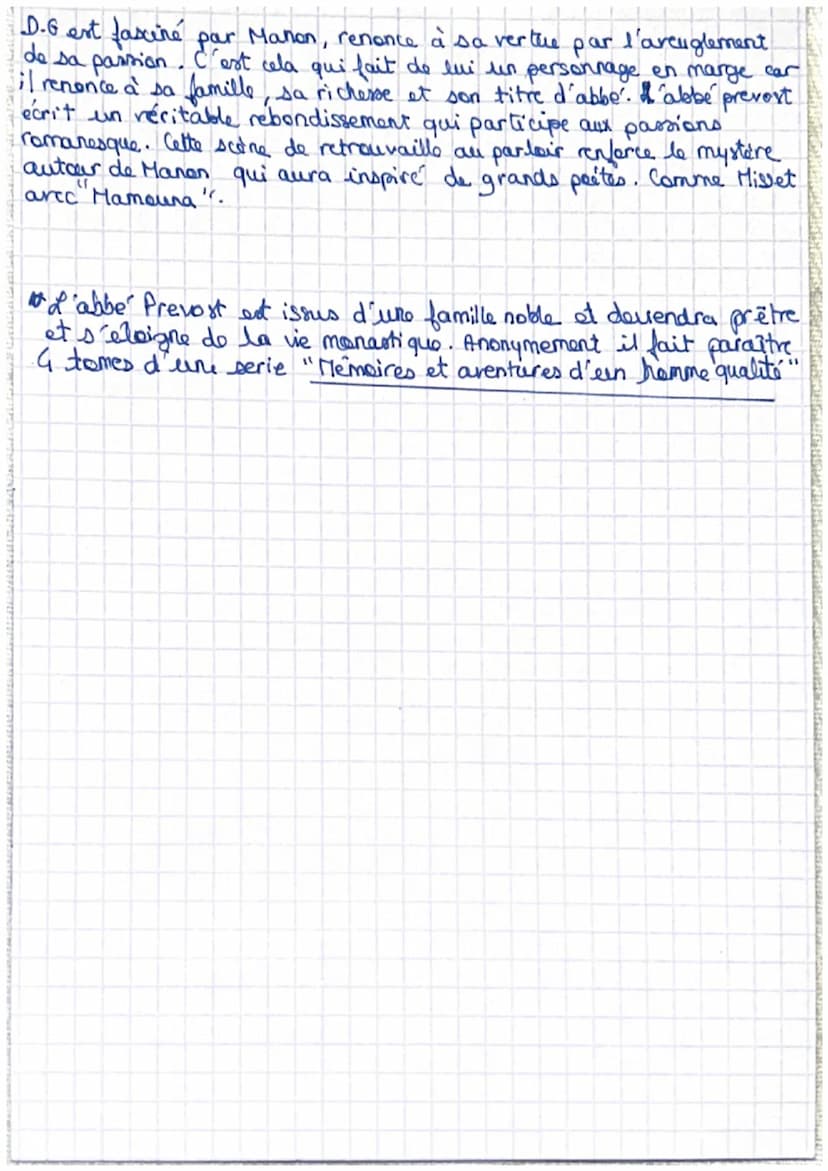 D.G est fasciné par Manon, renonce à sa vertue par l'aveuglement
de sa passion. C'est cela qui fait de lui un personnage en marge car
il renonce à sa famille, sa richesse et son titre d'abbé. L'abbé prevost
écrit un véritable rebondissement qui participe aux passions
romanesque. Cette scène de retrouvaille au parloir renforce le mystère
autour de Manon qui aura inspiré de grands poètes. Comme Misset
avec "Mamouna".
* L'abbé Prevost est issus d'une famille noble et deviendra prêtre
et s'éloigne de la vie monastique. Anonymement il fait paraître
4 tomes d'une serie "Mémoires et aventures d'un homme qualité"